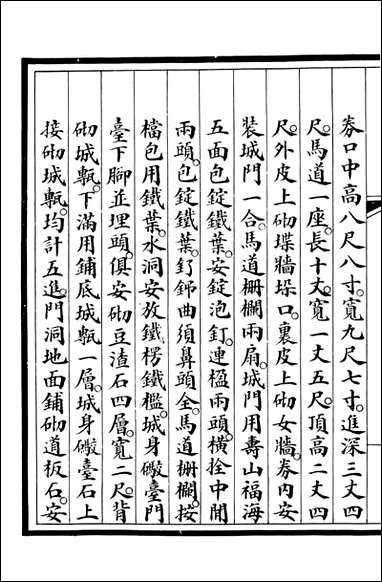 券口中高八尺八寸。寬九尺七寸。進深三丈四
尺。馬道一座。長十丈。寬一丈五尺。頂高二丈四
尺。外皮上砌堞牆垛口。裏皮上砌女牆。券內安
裝城門一合。馬道柵欄兩扇。城門用壽山福海
五面包錠鐵葉。安錠泡釘。連楹兩頭。橫拴中閒
兩頭。包錠鐵葉。釕鉤曲須鼻頭全。馬道柵欄。按
檔包用鐵葉。水洞安放鐵楞鐵檻。城身礮臺門
臺下腳並埋頭。俱安砌豆渣石四層。寬二尺。背
砌城甎。下滿用鋪底城甎一層。城身礮臺石上
接砌城甎。均計五進。門洞地面鋪砌道板石。安